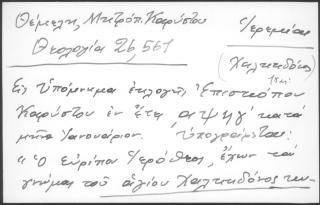 Θέμελη, Μητρόπ. Καρύστου
Θεολογία 26, 561
Ἱερεμίας
Χαλκηδόνος
Εἰς Ὑπόμνημα ἐκλογῆς Ἐπισκόπου
Καρύστου ἐν ἔτει αψηγʹ κατὰ
μῆνα Ἰανουάριον. ὑπογράφεται:
"Ὁ Εὐρίπου Ἱερόθεος, ἔχων τὰ
γνώμας τοῦ ἁγίου Χαλκηδόνος κυ-